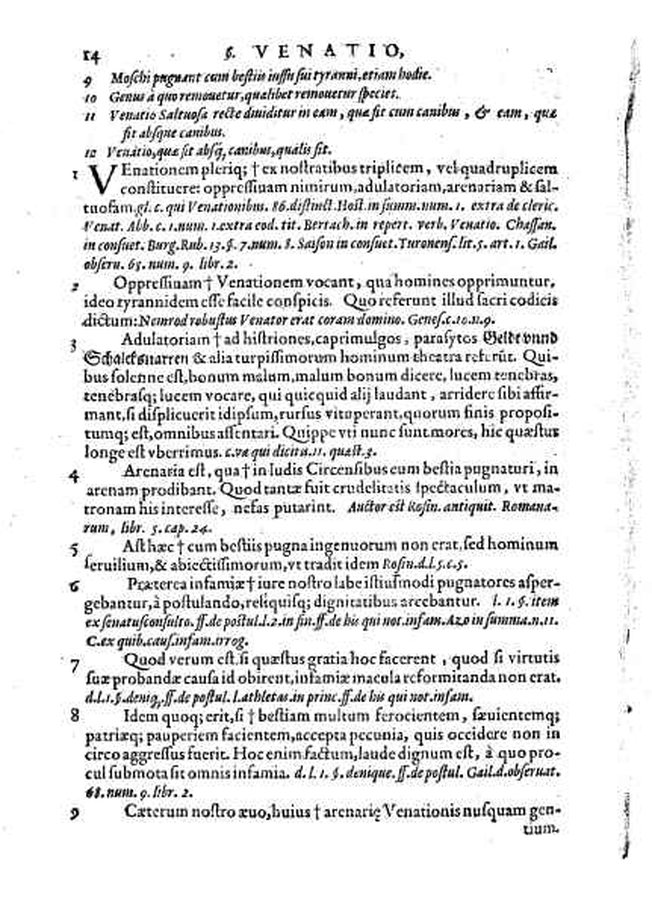 14 §. VENATIO,
9 Moschi pugnant cum bestiis iussu sui tyranni, etiam hodie.
10 Genus à quo remouetur, quælibet remouetur species.
11 Venatio Saltuosa recte diuiditur in eam, quæ fit cum canibus, & eam, quæ
fit absque canibus.
12 Venatio, quæ fit absq; canibus, qualis sit.
1 VEnationem pleriq; † ex nostratibus triplicem, vel quadruplicem
constituere: oppressiuam nimirum, adulatoriam, arenariam & sal-
tuosam. gl. c. qui Venationibus. 86. distinct. Host. in summ. num. 1. extra de cleric.
Venat. Abb. c. 1. num. 1. extra cod. tit. Bertach. in repert. verb. Venatio. Chassan.
in consuet. Burg. Rub. 13. §. 7. num. 8. Saison in consuet. Turonens. tit. 5. art. 1. Gail.
obseru. 68. num. 9. libr. 2.
2 Oppressiuam † Venationem vocant, qua homines opprimuntur,
ideo tyrannidem esse facile conspicis. Quo referunt illud sacri codicis
dictum: Nemrod robustus Venator erat coram domino. Genes. c. 10. n. 9.
3 Adulatoriam † ad histriones, caprimulgos, parasytos Geldt vnnd
Schalcksnarren & alia turpissimorum hominum theatra referūt. Qui-
bus solenne est, bonum malum, malum bonum dicere, lucem tenebras,
tenebrasq; lucem vocare, qui quicquid alij laudant, arridere sibi affir-
mant, si displicuerit idipsum, rursus vituperant, quorum finis proposi-
tumq; est, omnibus assentari. Quippe vti nunc sunt mores, hic quæstus
longe est vberrimus. c. va qui dicitis. 11. quæst. 3.
4 Arenaria est, qua † in ludis Circensibus cum bestia pugnaturi, in
arenam prodibant. Quod tantæ fuit crudelitatis spectaculum, vt ma-
tronam his interesse, nefas putarint. Auctor est Rosin. antiquit. Romana-
rum, libr. 5. cap. 24.
5 Ast hæc † cum bestiis pugna ingenuorum non erat, sed hominum
seruilium, & abiectissimorum, vt tradit idem Rosin. d. l. 5. c. 5.
6 Præterea infamiæ † iure nostro labe istiusmodi pugnatores asper-
gebantur, à postulando, reliquisq; dignitatibus arcebantur. l. 1. §. item
ex senatusconsulto. ff. de postul. l. 2. in fin. ff. de his qui not. infam. Azo in summa. n. 11.
C. ex quib. caus. infam. irrog.
7 Quod verum est, si quæstus gratia hoc facerent, quod si virtutis
suæ probandæ causa id obirent, infamiæ macula reformitanda non erat.
d. l. 1. §. deniq; ff. de postul. l. athletas. in princ. ff. de his qui not. infam.
8 Idem quoq; erit, si † bestiam multum ferocientem, sæuientemq;
patriæq; pauperiem facientem, accepta pecunia, quis occidere non in
circo aggressus fuerit. Hoc enim factum, laude dignum est, à quo pro-
cul submota sit omnis infamia. d. l. 1. §. denique. ff. de postul. Gail. d. obseruat.
68. num. 9. libr. 2.
9 Cæterum nostro æuo, huius † arenarię Venationis nusquam gen-
tium.